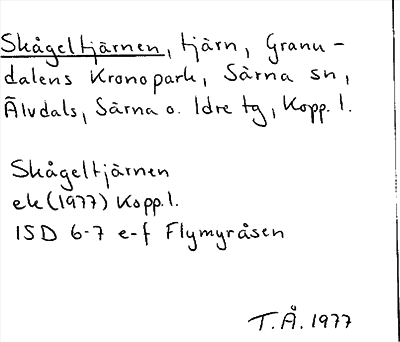 Skågeltjärnen, tjärn, Granu-
dalens Kronopark, Särna sn,
Älvdals, Särna o. Idre tg, Kopp. l.
Skågeltjärnen
ek (1977) Kopp. l.
15D 6-7 e-f Flymyråsen
T.Å. 1977